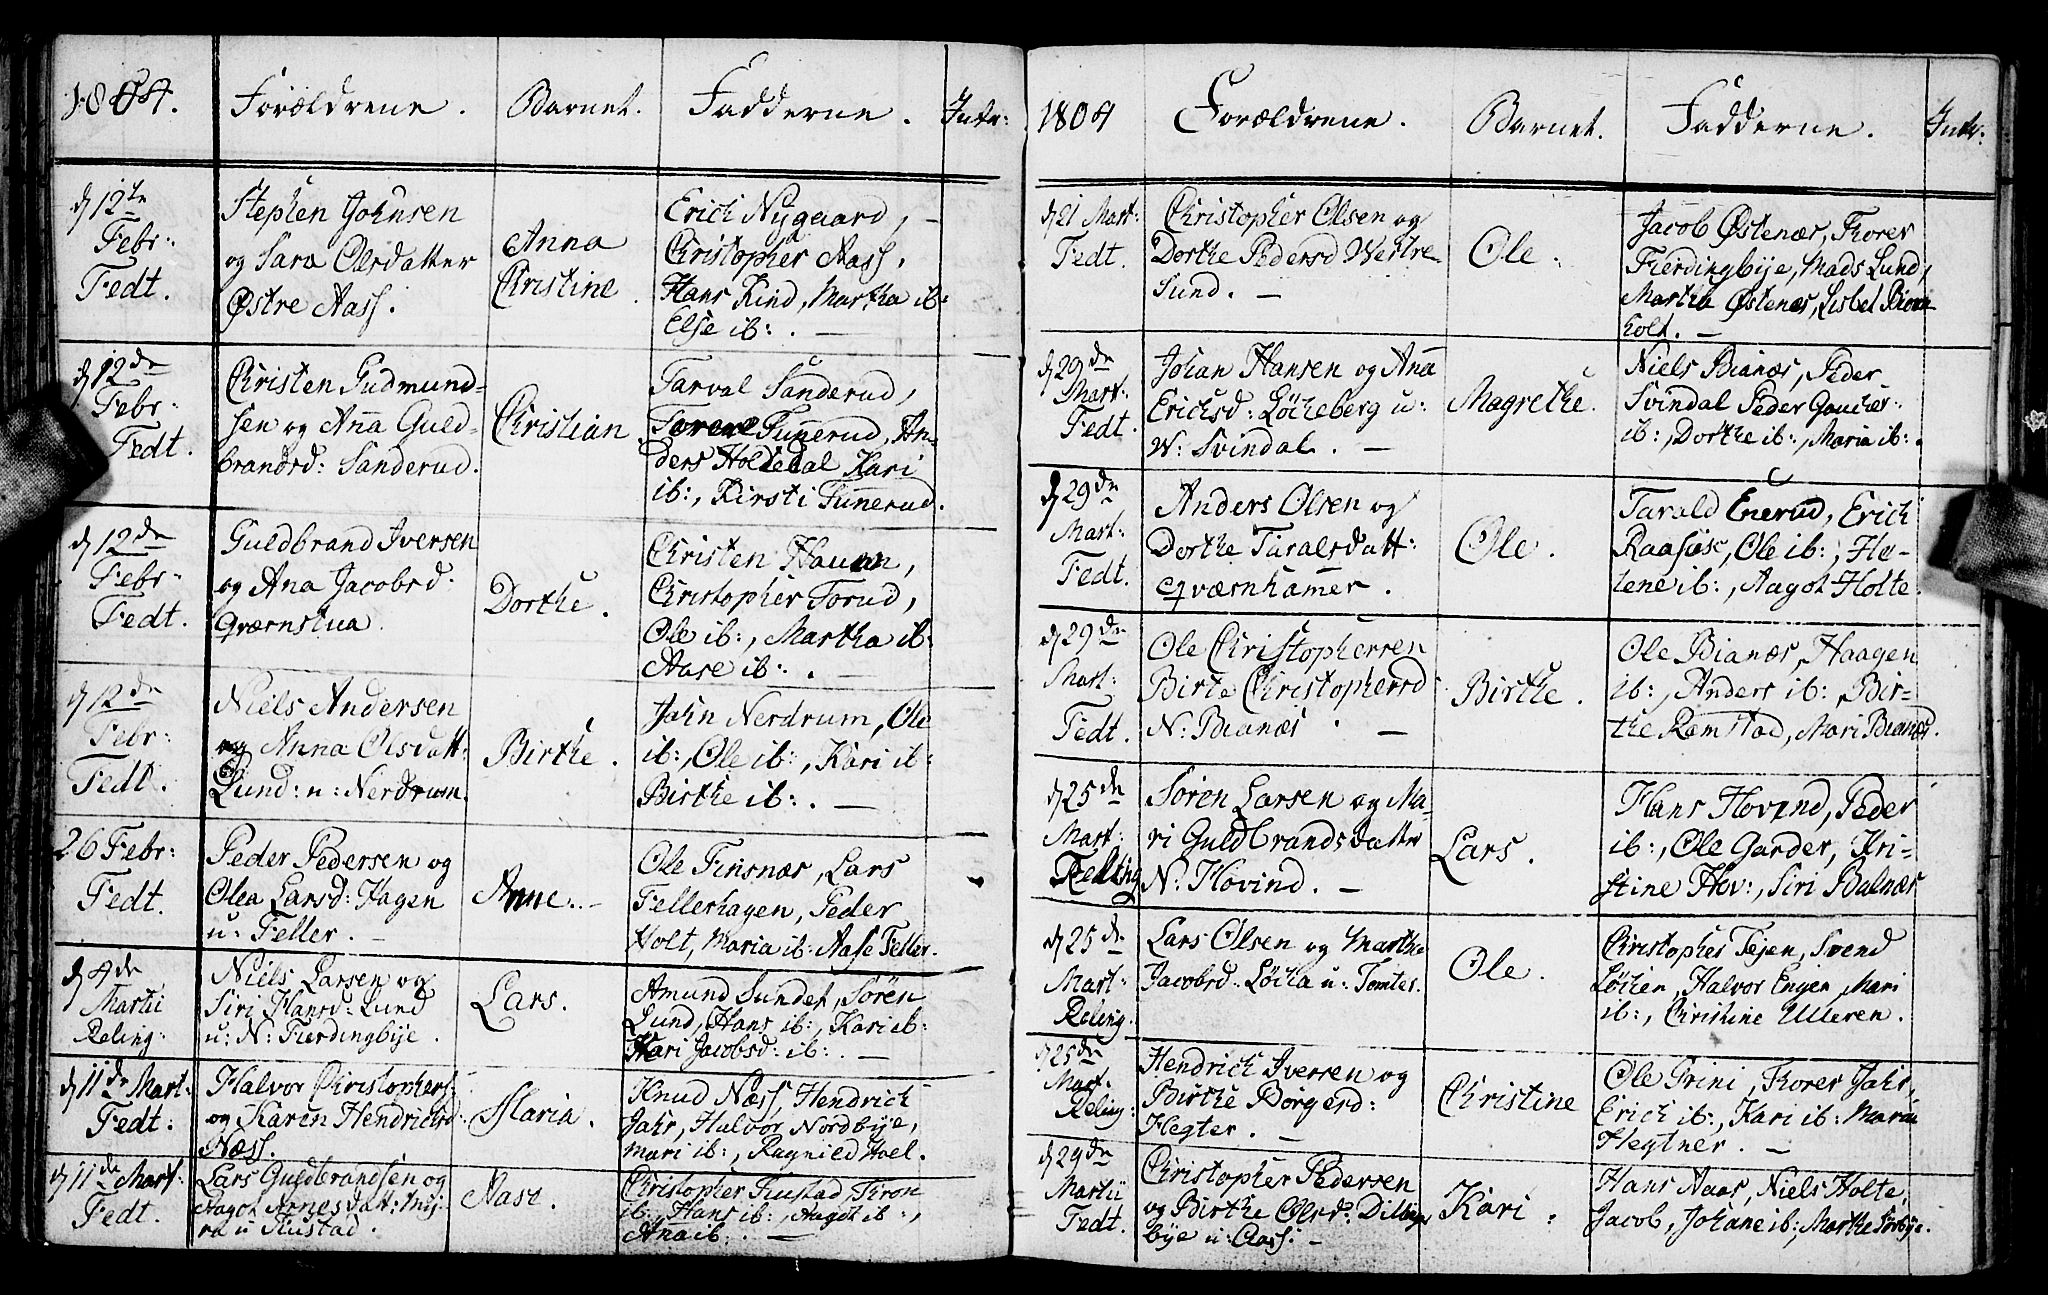 1804. Forældrene. Barnet. Fadderne. Intr:
d 12te Febr: Fedt.
Stephen Johnsen
og Sara Olsdatter
Østre Aass.
Anna
Christine.
Erich Nygaard,
Christopher Aass,
Hans Kind, Martha ib:
Else ib:.
d 12de Febr: Fedt.
Christen Gudmund-
sen og Anna Guld-
brandsd: Sanderud.
Christian
Tarval Sanderud,
Funnerud, An-
ders Holdedal Kari
ib:, Kirsti Funnerud.
d 12de Febr: Fedt.
Guldbrand Iversen
og Ana Jacobsd:
Qværnstua.
Dorthe.
Christen Hauen,
Christopher Torud,
Ole ib:, Martha ib:
Aase ib:.
d 12de Febr: Fedt.
Niels Andersen
og Anna Olsdatt:
Lund: u: Nerdrum.
Birthe.
John Nerdrum, Ole
ib:, Ole ib:, Kari ib:
Birthe ib:.
26 Febr: Fedt.
Peder Pedersen og
Olea Larsd: Hagen
u: Feller.
Anne.
Ole Finsnæs, Lars
Fellerhagen, Peder
Holt, Maria ib: Aase Feller.
d 4de Martii Reling:
Niels Larsen og
Siri Hansd: Lund
u: N: Fierdingbye.
Lars.
Amund Sundet, Sören
Lund, Hans ib:, Kari ib:
Kari Jacobsd: ib:.
d 11de Mart: Fedt:
Halvor Christophers:
og Karen Hendrichsd:
Næss.
Maria.
Knud Næss, Hendrich
Jahr, Halvor Nordbye,
Mari ib:, Ragnild Hoel.
d 11de Mart: Fedt.
Lars Guldbrandsen og
Aagot Arnesdatt: Myj-
ra u Rustad.
Aase.
Christopher Rustad, Tron
ib:, Hans ib:, Aagot ib:,
Ana ib:.
1804 Forældrene. Barnet. Fadderne. Intr:
d 21 Mart: Fedt.
Christopher Olsen og
Dorthe Pedersd Westre
Sund.
Ole.
Jacob Østenæs, Torer
Fierdingbye, Mads Lund,
Martha Østenæs, Lisbet
holt.
d 29de Mart: Fedt.
Johan Hansen og Ana
Erichsd: Löcheberg u:
W: Svindal.
Magrethe.
Niels Bianæs, Peder
Svindal Peder
ib:, Dorthe ib:, Maria ib:.
d 29de Mart: Fedt.
Anders Olsen og
Dorthe Taralsdatt:
Qværnhamer.
Ole.
Tarald Enerud, Erich
Raasiøe, Ole ib:, He-
lene ib:, Aagot Holte.
d 29de Mart: Fedt.
Ole Christophersen
Birte Christophersd
N: Bianæs.
Birthe.
Ole Bianæs, Haagen
ib:, Anders ib:, Bir-
the Ramstad, Mari Bianæs.
d 25de Mart: Reling
Sören Larsen og Ma-
ri Guldbrandsdatter
N: Hovind.
Lars.
Hans Hovind, Peder
ib:, Ole Garder, Kri-
stine Hov:, Siri Balnæs
d 25de Mart: Reling.
Lars Olsen og Martha
Jacobsd: Löcha u: Tomter.
Ole.
Christopher Tejen, Svend
Löchen, Halvor Engen, Mari
ib:, Christine Ulleren.
d 25de Mart: Reling:
Hendrich Iversen og
Birthe Borgersd:
Hegter.
Christine
Ole Trini, Torer Jahr,
Erich ib:, Kari ib: Maria
Hegtner.
d 29de Martii Fedt.
Christopher Pedersen
og Birthe Olsd: Dilling
bye u: Aass.
Kari.
Hans Aaas, Niels Holte,
Jacob, Johane ib:, Marthe Sörbye.